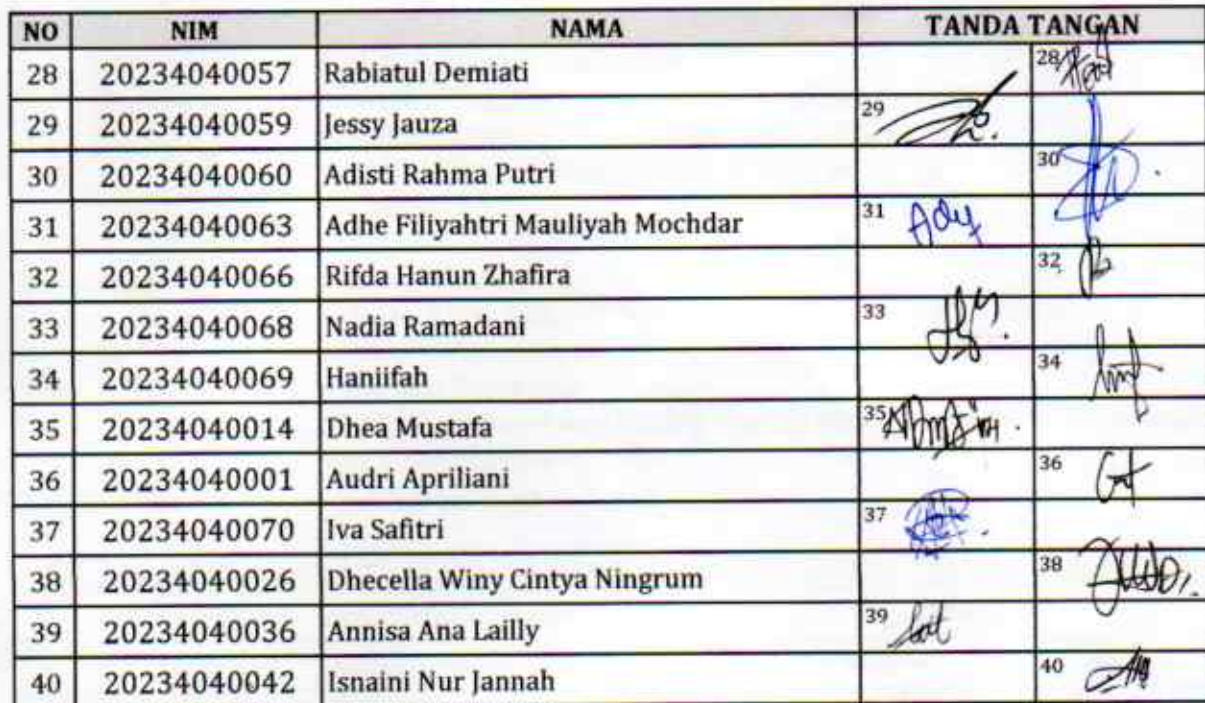 NO NIM NAMA TANDA TANGAN
28 20234040057 Rabiatul Demiati 28
29 20234040059 Jessy Jauza 29
30 20234040060 Adisti Rahma Putri 30
31 20234040063 Adhe Filiyahtri Mauliyah Mochdar 31
32 20234040066 Rifda Hanun Zhafira 32
33 20234040068 Nadia Ramadani 33
34 20234040069 Haniifah 34
35 20234040014 Dhea Mustafa 35
36 20234040001 Audri Apriliani 36
37 20234040070 Iva Safitri 37
38 20234040026 Dhecella Winy Cintya Ningrum 38
39 20234040036 Annisa Ana Lailly 39
40 20234040042 Isnaini Nur Jannah 40